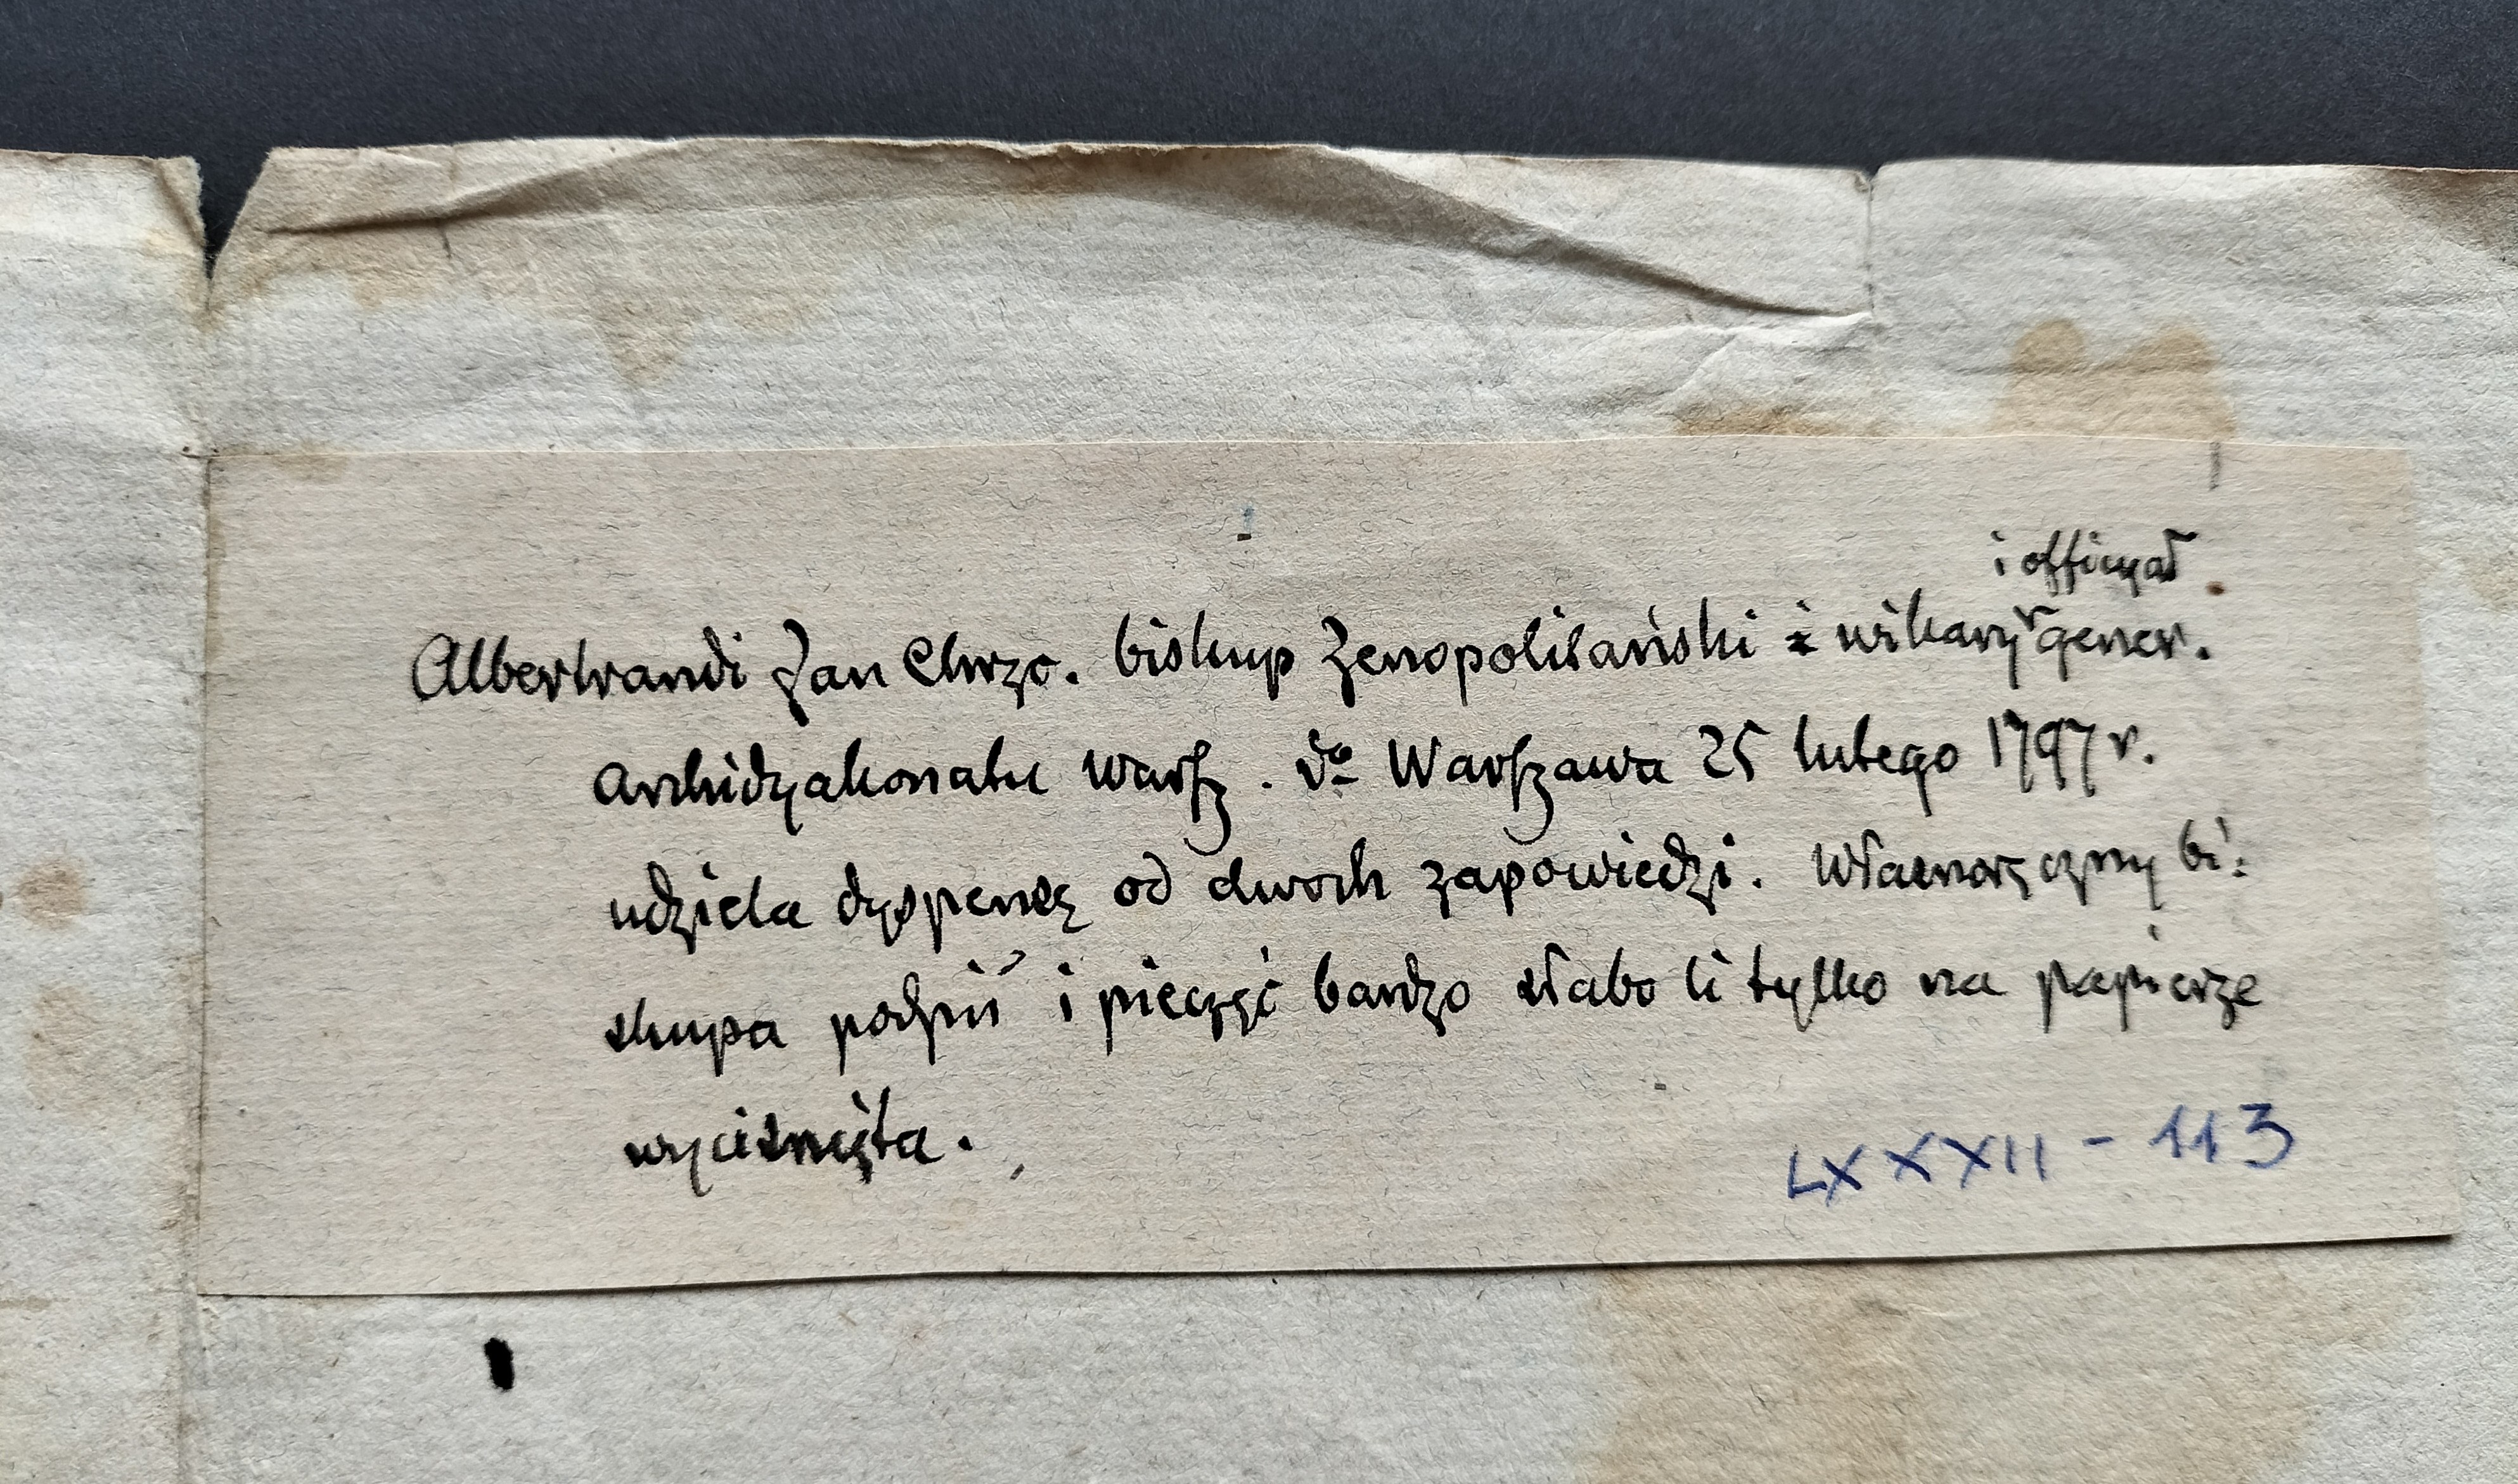 i officyał
Albertrandi Jan Chrzc. biskup Zenopolitański i wikary gener.
Archidyakonatu Warsz. do Warszawa 25 lutego 1797 r.
udziela dyspensę od dwoch zapowiedzi. Własnoręczny bi:
skupa podpis i pieczęć bardzo słabo li tylko na papierze
wyciśnięta.
LXXXII - 113